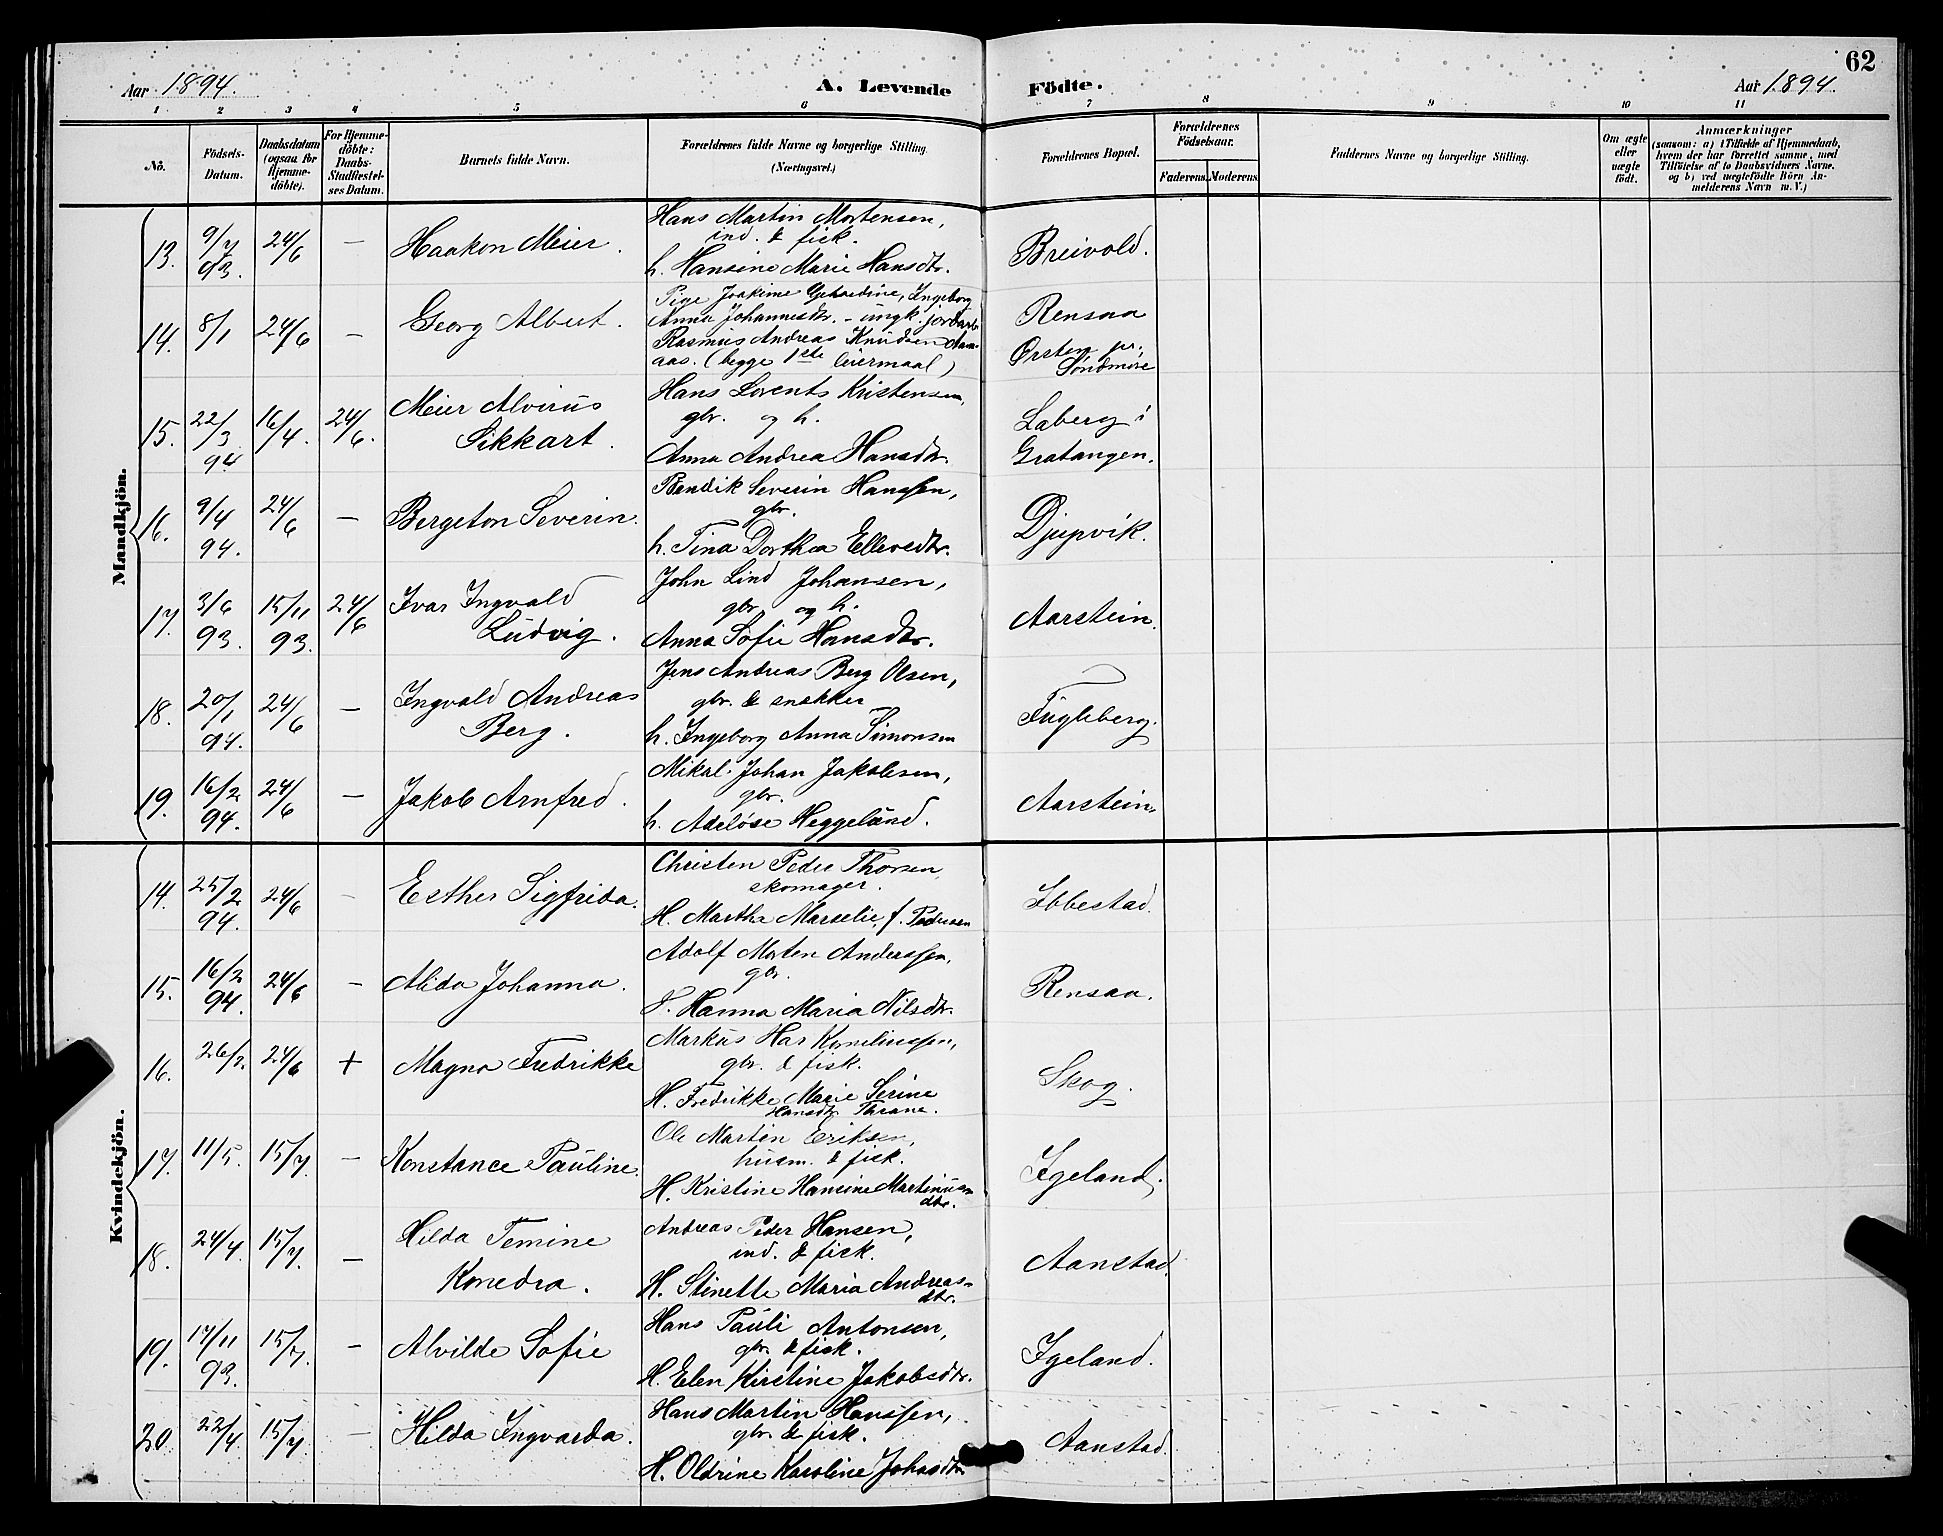 62
Aar 1894. A. Levende Födte. Aar 1894.
1 2 3 4 5 6 7 8 9 10 11
No.
Födsels-
Datum.
Daabsdatum
(ogsaa for
Hjemme-
döbte).
For Hjemme-
döbte:
Daabs-
Stadfæstel-
ses Datum.
Barnets fulde Navn.
Forældrenes fulde Navne og borgerlige Stilling
(Næringsvei.)
Forældrenes Bopæl.
Forældrenes
Födselsaar.
Faderens. Moderens.
Faddernes Navne og borgerlige Stilling.
Om ægte
eller
uægte
födt.
Anmærkninger
(saasom: a) i Tilfælde af Hjemmedaab,
hvem der har forrettet samme, med
Tilföielse af to Daabsvidners Navne,
og b) ved uægtefödte Börn An-
melderens Navn m. V.)
Mandkjön.
13. 9/7 93. 24/6 — Haakon Meier.
Hans Martin Mortensen,
ind. & fisk.
h. Hansine Marie Hansdtr.
Breivold.
14. 8/1 24/6 — Georg Albert.
Pige Joakime Gjertsdine, Ingeborg
Anna Johannesdtr. - ungk. jordarb.
Rasmus Andreas Knudsen Aam-
aas. (begge 1ste leiermaal)
Rensaa
Ørsten pr.
Söndmöre
15. 22/3 94 16/4. 24/6. Meier Alvirus
Sikkart.
Hans Lorents Kristensen,
gbr. og h.
Anna Andrea Hansdtr.
Laberg i
Gratangen.
16. 9/4 94. 24/6 — Bergeton Severin.
Bendik Severin Hanssen,
gbr.
h. Tina Dorthea Ellevsdtr.
Djupvik.
17. 3/6 93. 15/11 93. 24/6 Ivar Ingvald
Ludvig.
John Lind Johansen,
gbr. og h.
Anna Sofie Hansdtr.
Aarstein.
18. 20/1 94. 24/6 — Ingvald Andreas
Berg.
Jens Andreas Berg Olsen,
gbr. & snekker
h. Ingeborg Anna Simonsen
Fugleberg.
19. 16/2 94. 24/6 — Jakob Arnfred.
Mikal Johan Jakobsen,
gbr.
h. Adelöse Heggelund.
Aarstein.
Kvindekjön.
14. 25/2 94. 24/6 — Esther Sigfrida.
Christen Peder Thorsen
skomager.
H. Martha Marselie, f. Pedersen
Ibbestad.
15. 16/2 94. 24/6 — Alida Johanna.
Adolf Morten Anderssen,
gbr.
H. Hanna Maria Nilsdtr.
Rensaa.
16. 26/3. 24/6 + Magna Fredrikke
Markus Har Korneliussen,
gbr. & fisk.
H. Fredrikke Marie Serine
Hansdtr. Thrane.
Skog.
17. 11/5. 15/7. — Konstance Pauline.
Ole Martin Eriksen,
husm. & fisk.
H. Kristine Hansine Martinus-
dtr.
Igeland.
18. 24/4. 15/7. — Hilda Temine
Konedra.
Andreas Peder Hansen,
ind. & fisk.
H. Stinette Maria Andreas-
dtr.
Aanstad.
19. 17/11 93. 15/7. — Alvilde Sofie
Hans Pauli Antonsen,
gbr. & fisk.
H. Elen Kirstine Jakobsdtr.
Igeland.
20. 22/4. 15/7. — Hilda Ingvarda.
Hans Martin Hanssen,
gbr. & fisk.
H. Oldrine Karoline Johasdtr.
Aanstad.